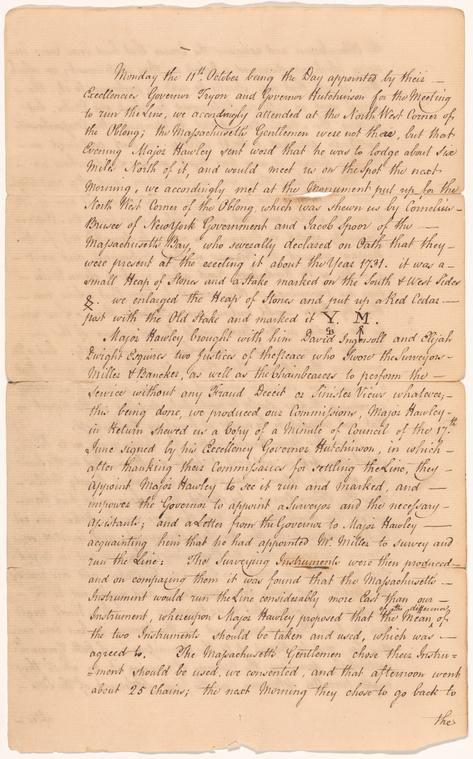 Monday the 11th. October being the Day appointed by their
Excellencies Governor Tryon and Governor Hutchinson for the Meeting
to run the Line, we accordingly attended at the North West Corner of
the Oblong; the Massachusetts Gentlemen were not there, but that
Evening Major Hawley sent word that he was to lodge about six
Miles North of it, and would meet us on the Spot the next
Morning, we accordingly met at the Monument put up, for the
North West Corner of the Oblong, which was shewn us by Cornelius
of New York Government and Jacob Spoor of the
Massachusetts Bay, who severally declared on Oath that they
were present at the erecting it about the Year 1731. it was a
small Heap of Stones and a Stake marked on the South & West Sides
we enlarged the Heap of Stones and put up a Red Cedar
post with the Old Stake and marked it Y. M.
Major Hawley brought with him David Ingersoll and Elijah
Dwight Esquires two Justices of the Peace who Swore the Surveyors
Miller & Bancker, as well as the Chainbearers to perform the
Service without any Fraud Deceit or Sinister Views whatever;
this being done, we produced our Commissions, Major Hawley
in Return shewed us a Copy of a Minute of Council of the 17.th
June signed by his Excellency Governor Hutchinson, in which
after thanking their Commissaries for settling the Line, they
appoint Major Hawley to see it run and marked, and
impower the Governor to appoint a Surveyor and the necessary
assistants; and a Letter from the Governor to Major Hawley
acquainting him that he had appointed Mr. Miller to survey and
run the Line: The Surveying Instruments were then produced
and on comparing them it was found that the Massachusetts
Instrument would run the Line considerably more East than our
Instrument, whereupon Major Hawley proposed that the Mean of the difference of
the two Instruments should be taken and used, which was
agreed to. The Massachusetts Gentlemen chose their Instru=
=ment should be used, we consented, and that afternoon went
about 25 Chains; the next Morning they chose to go back to
the